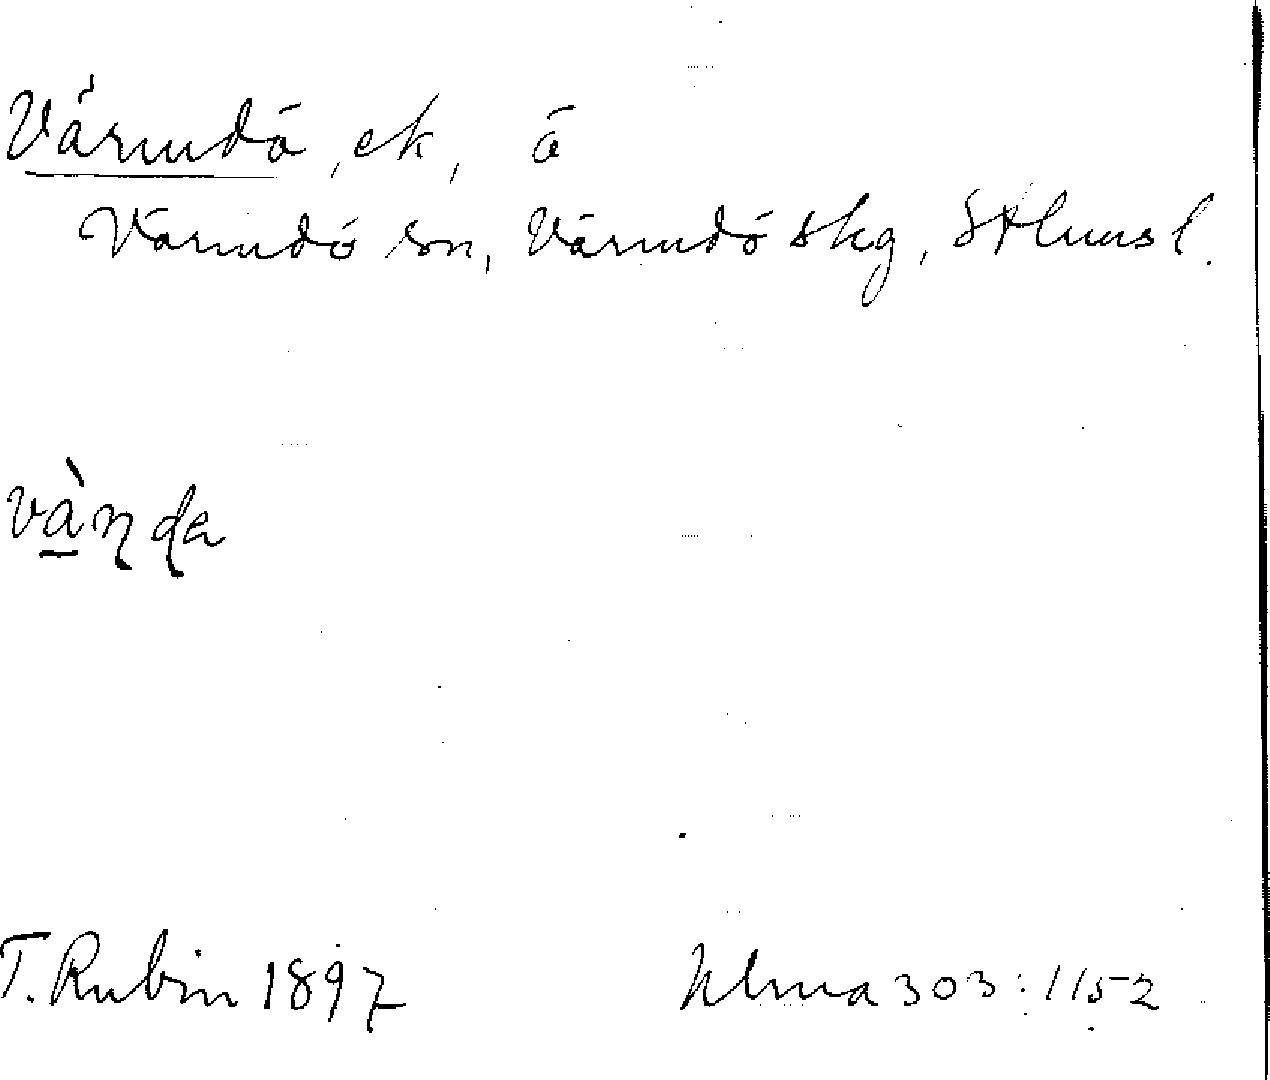 Värmdö, ek, ö
Värmdö sn, Värmdö skg, Sthmsl.
T. Rubin 1897
Ulma 303:1152